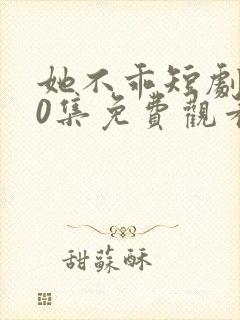 她不乖短劇
0集免費觀看
甜蘇酥